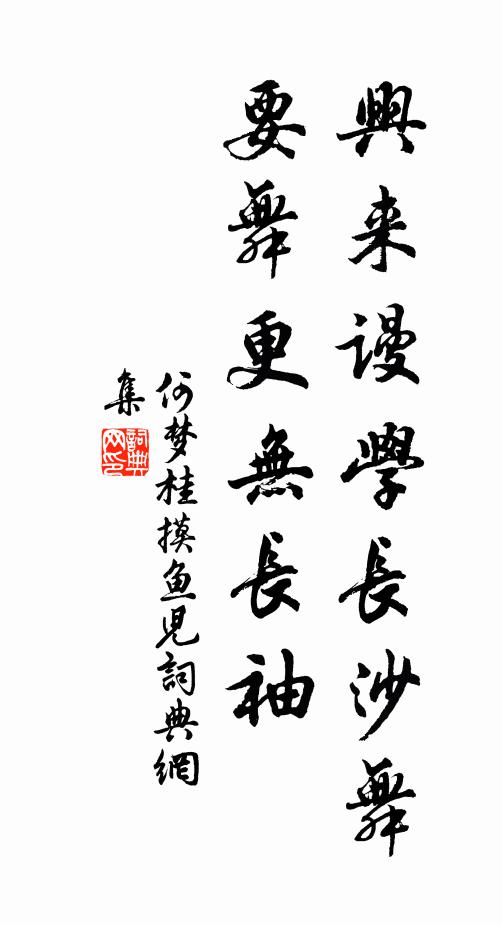 興来謾學長沙舞
要舞更無長袖
何梦桂摸鱼児詞典網
集
詞典网印